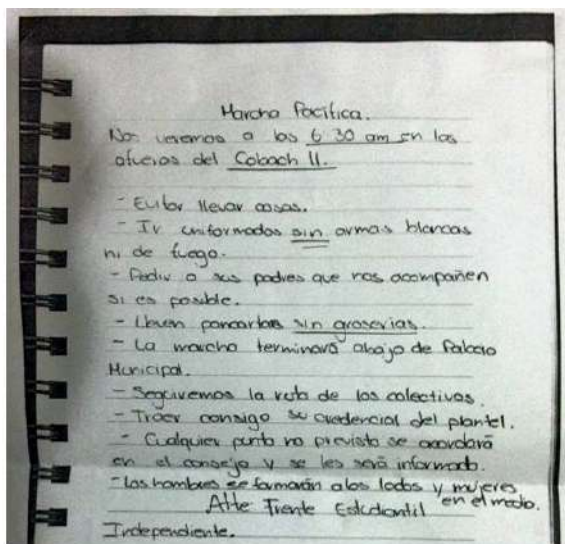 Marcha Pacífica.
Nos veremos a las 6:30 am en las
afueras del Cobach 11.
- Evitar llevar cosas.
- Ir uniformados sin armas blancas
ni de fuego.
- Pedir a sus padres que nos acompañen
si es posible.
- Lleven pancartas sin groserias.
- La marcha terminará abajo de Palacio
Municipal.
- Seguiremos la ruta de los colectivos.
- Traer consigo su credencial del plantel.
- Cualquier punto no previsto se acordará
en el consejo y se les será informado.
- Los hombres se formarán a los lados y mujeres
en el medio.
Atte: Frente Estudiantil
Independiente.